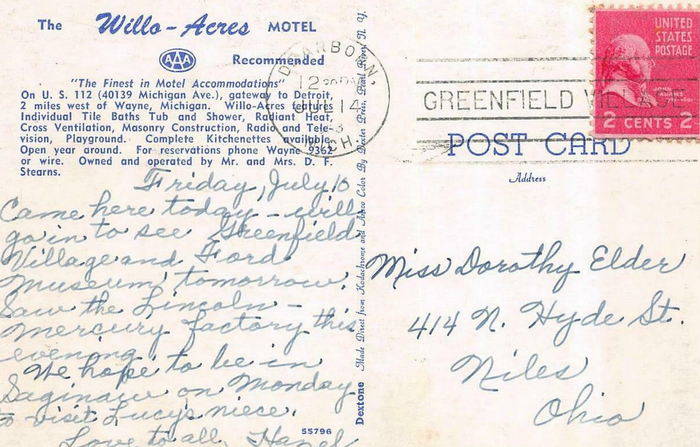 The Willo-Acres MOTEL
AAA Recommended
"The Finest in Motel Accommodations"
On U. S. 112 (40139 Michigan Ave.), gateway to Detroit,
2 miles west of Wayne, Michigan. Willo-Acres features
Individual Tile Baths Tub and Shower, Radiant Heat,
Cross Ventilation, Masonry Construction, Radio and Tele-
vision, Playground. Complete Kitchenettes available.
Open year around. For reservations phone Wayne 9362
or wire. Owned and operated by Mr. and Mrs. D. F.
Stearns.
Friday, July 10
Came here today - will
go in to see Greenfield
Village and Ford
Museum tomorrow.
Saw the Lincoln -
Mercury factory this
evening.
We hope to be in
Saginaw on Monday
to visit Lucy's niece.
Love to all, Hazel
55796
Dextone Made Direct from Kodachrome and Ansco Color By Dexter Press, Pearl River, N. Y.
DEARBORN,
12
JUL 14
MICH.
GREENFIELD VILLAGE
UNITED
STATES
POSTAGE
JOHN
ADAMS
2 CENTS 2
POST CARD
Address
Miss Dorothy Elder
414 N. Hyde St.
Niles
Ohio